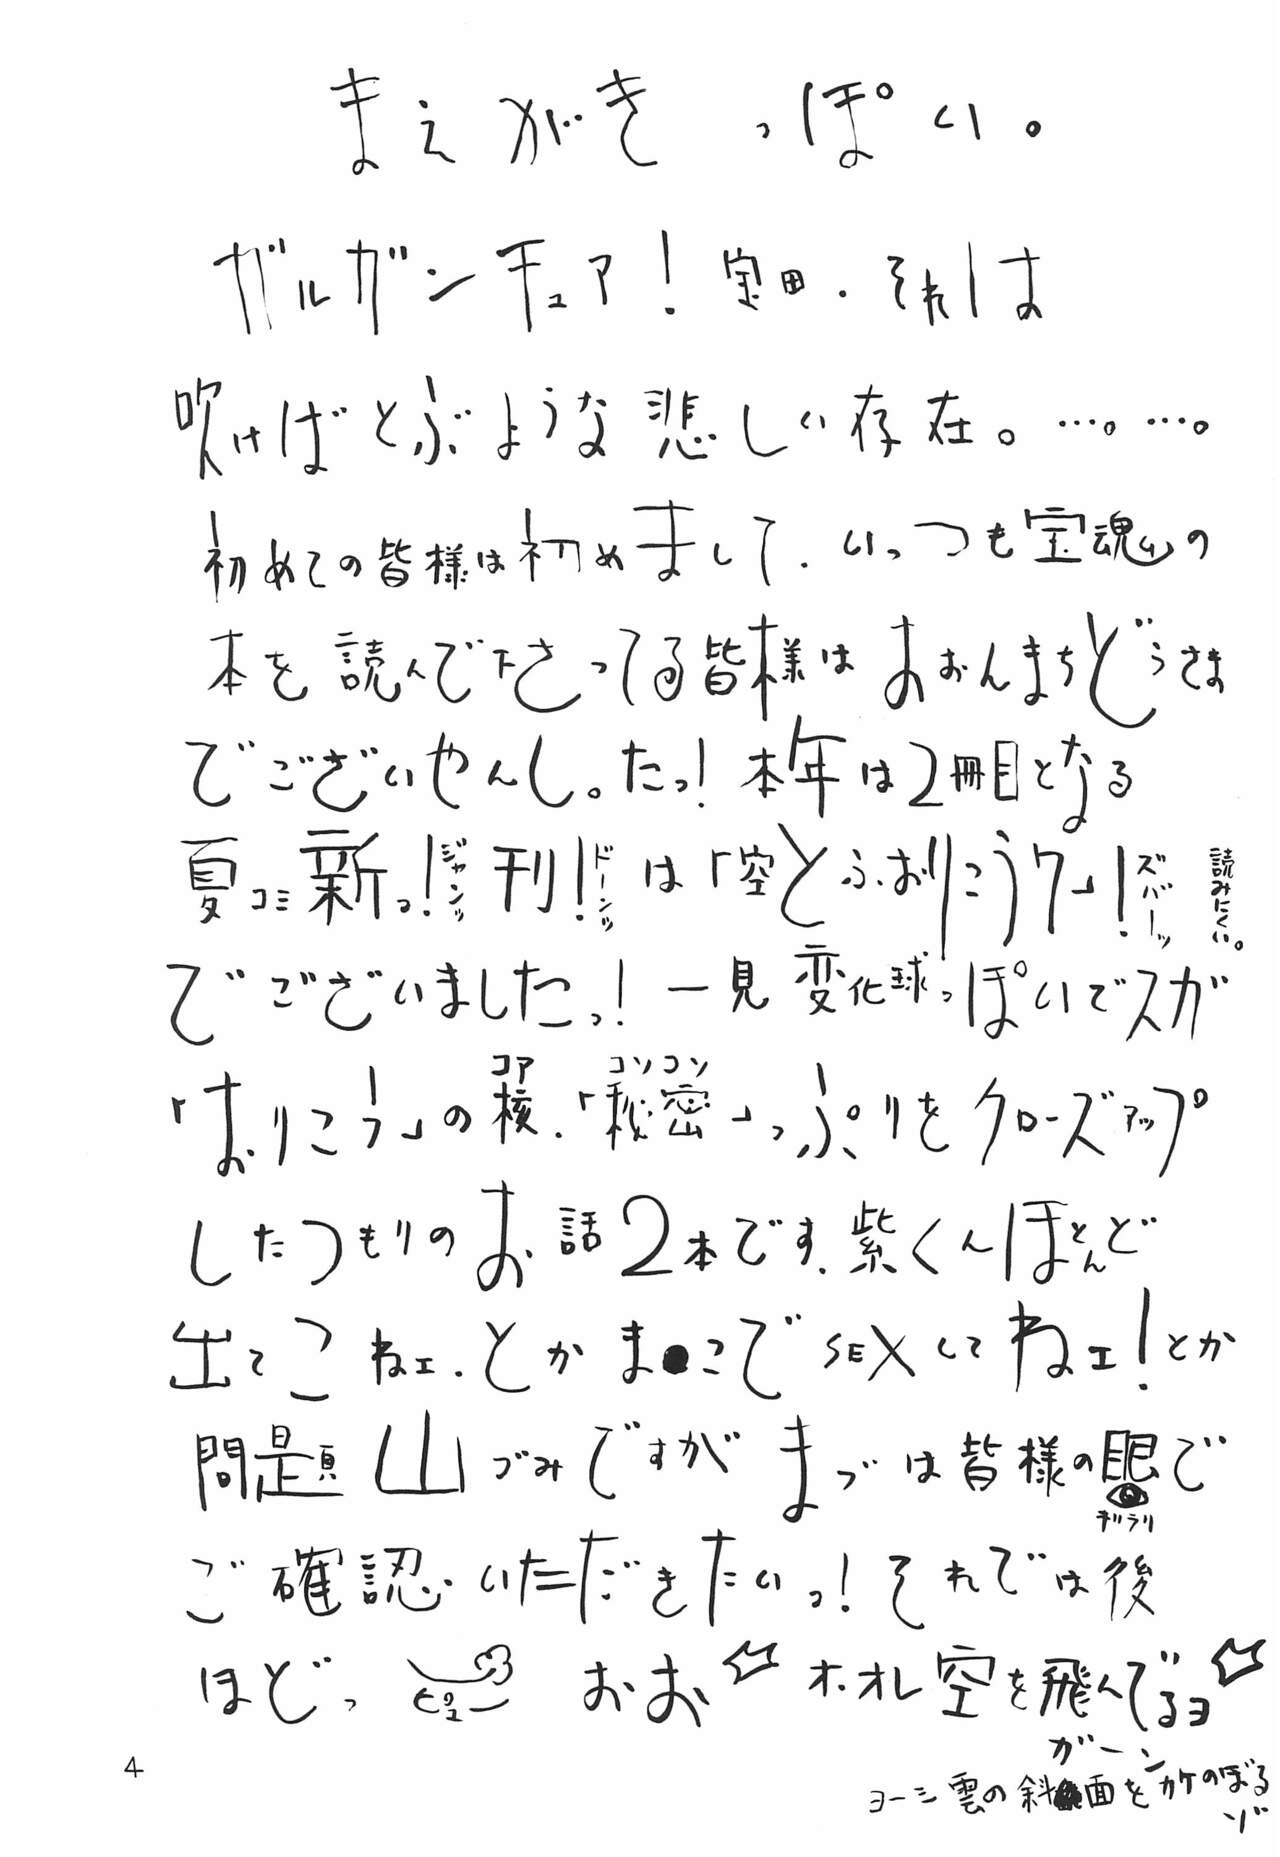 まえがきっぽい。
ガルガンチュア!宝田.それは
吹けばとぶような悲しい存在。…。…。
初めての皆様は初めまして.いっつも宝魂の
本を読んで下さってる皆様はおおんまちどうさま
でございやんし。たっ!本年は2冊目となる
夏コミ新っ!ジャンッ刊!ドーンッは「空とふおりこうワ」!ズバーッ
読みにくい。
でございましたっ!一見変化球っぽいでスガ
コア コソコソ
「おりこう」の核.「秘密」っぷりをクローズアップ
したつもりのお話2本です.紫くんほとんど
出てこねェ.とかま●こでSEXしてねェ!とか
問題山づみですがまづは皆様の眼で
ギラリ
ご確認いただきたいっ!それでは後
ほどっ ピュー おお オ.オレ空を飛んでるヨ
ガーン
ヨーシ雲の斜面をカケのぼる
ゾ
4